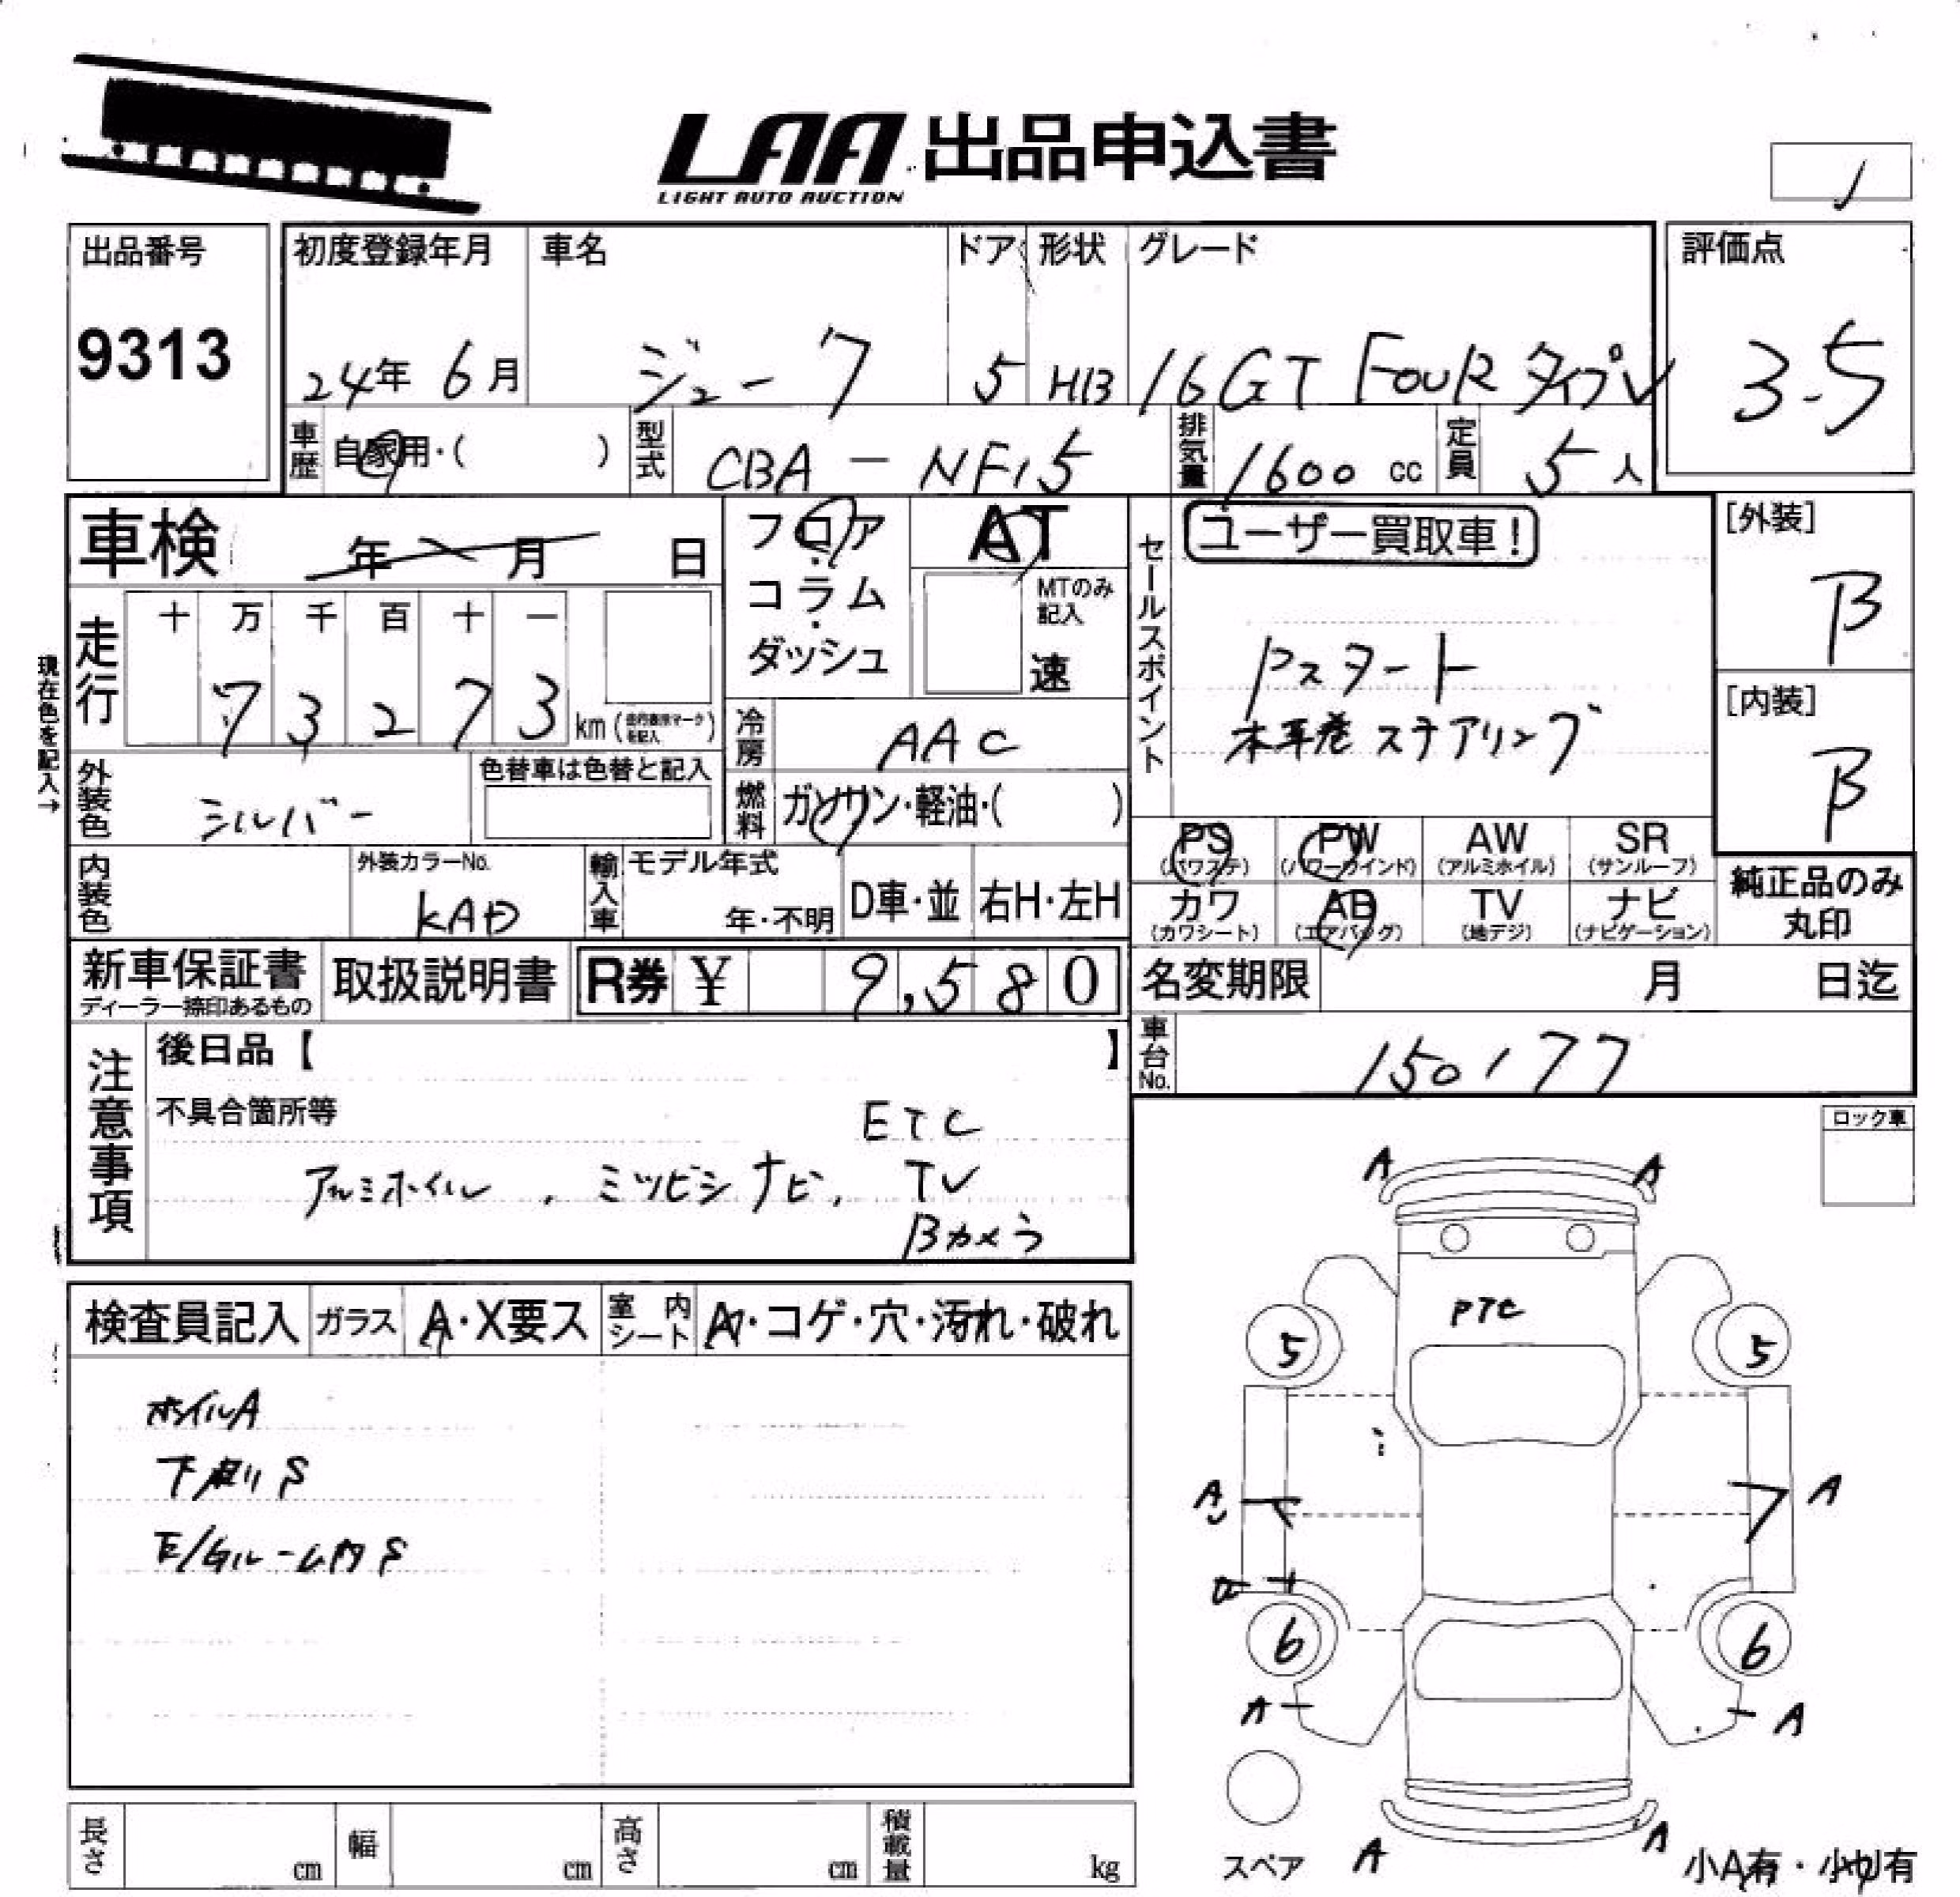 LAA 出品申込書
LIGHT AUTO AUCTION
出品番号
9313
初度登録年月
24年 6月
車名
ジューク
ドア
5
形状
HB
グレード
16GT FOUR タイプV
評価点
3.5
車歴 自家用・( )
型式 CBA - NF15
排気量 1600 cc
定員 5 人
車検 年 月 日
フロア・コラム・ダッシュ
AT
MTのみ記入
速
セールスポイント
ユーザー買取車!
Pスタート
本革巻ステアリング
[外装]
B
[内装]
B
現在色を記入→
走行
十 万 千 百 十 一
7 3 2 7 3 km (走行表示マークを記入)
冷房 AAC
燃料 ガソリン・軽油・( )
外装色 シルバー
色替車は色替と記入
内装色
外装カラーNo.
KAD
輸入車 モデル年式
年・不明
D車・並
右H・左H
PS (パワステ)
PW (パワーウインド)
AW (アルミホイル)
SR (サンルーフ)
カワ (カワシート)
AB (エアバッグ)
TV (地デジ)
ナビ (ナビゲーション)
純正品のみ丸印
新車保証書
ディーラー捺印あるもの
取扱説明書
R券 ¥ 9,580
名変期限 月 日迄
車台No. 150177
注意事項
後日品【 】
不具合箇所等
ETC
アルミホイル , ミツビシナビ, TV
Bカメラ
ロック車
検査員記入
ガラス A・X要ス
室内シート A・コゲ・穴・汚れ・破れ
ホイルA
下廻りS
E/Gルーム内S
A A
PTC
5 5
A A
6 6
A A
A A
スペア
小A有・小U有
長さ cm
幅 cm
高さ cm
積載量 kg